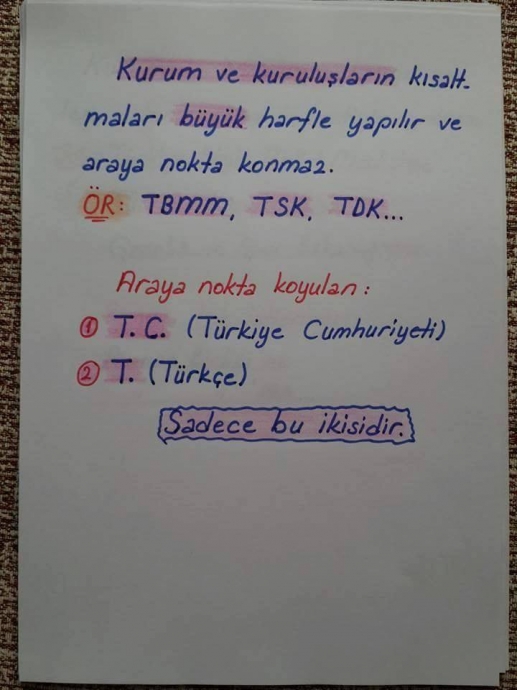 Kurum ve kuruluşların kısalt-
maları büyük harfle yapılır ve
araya nokta konmaz.
ÖR: TBMM, TSK, TDK...
Araya nokta koyulan:
① T.C. (Türkiye Cumhuriyeti)
② T. (Türkçe)
Sadece bu ikisidir.